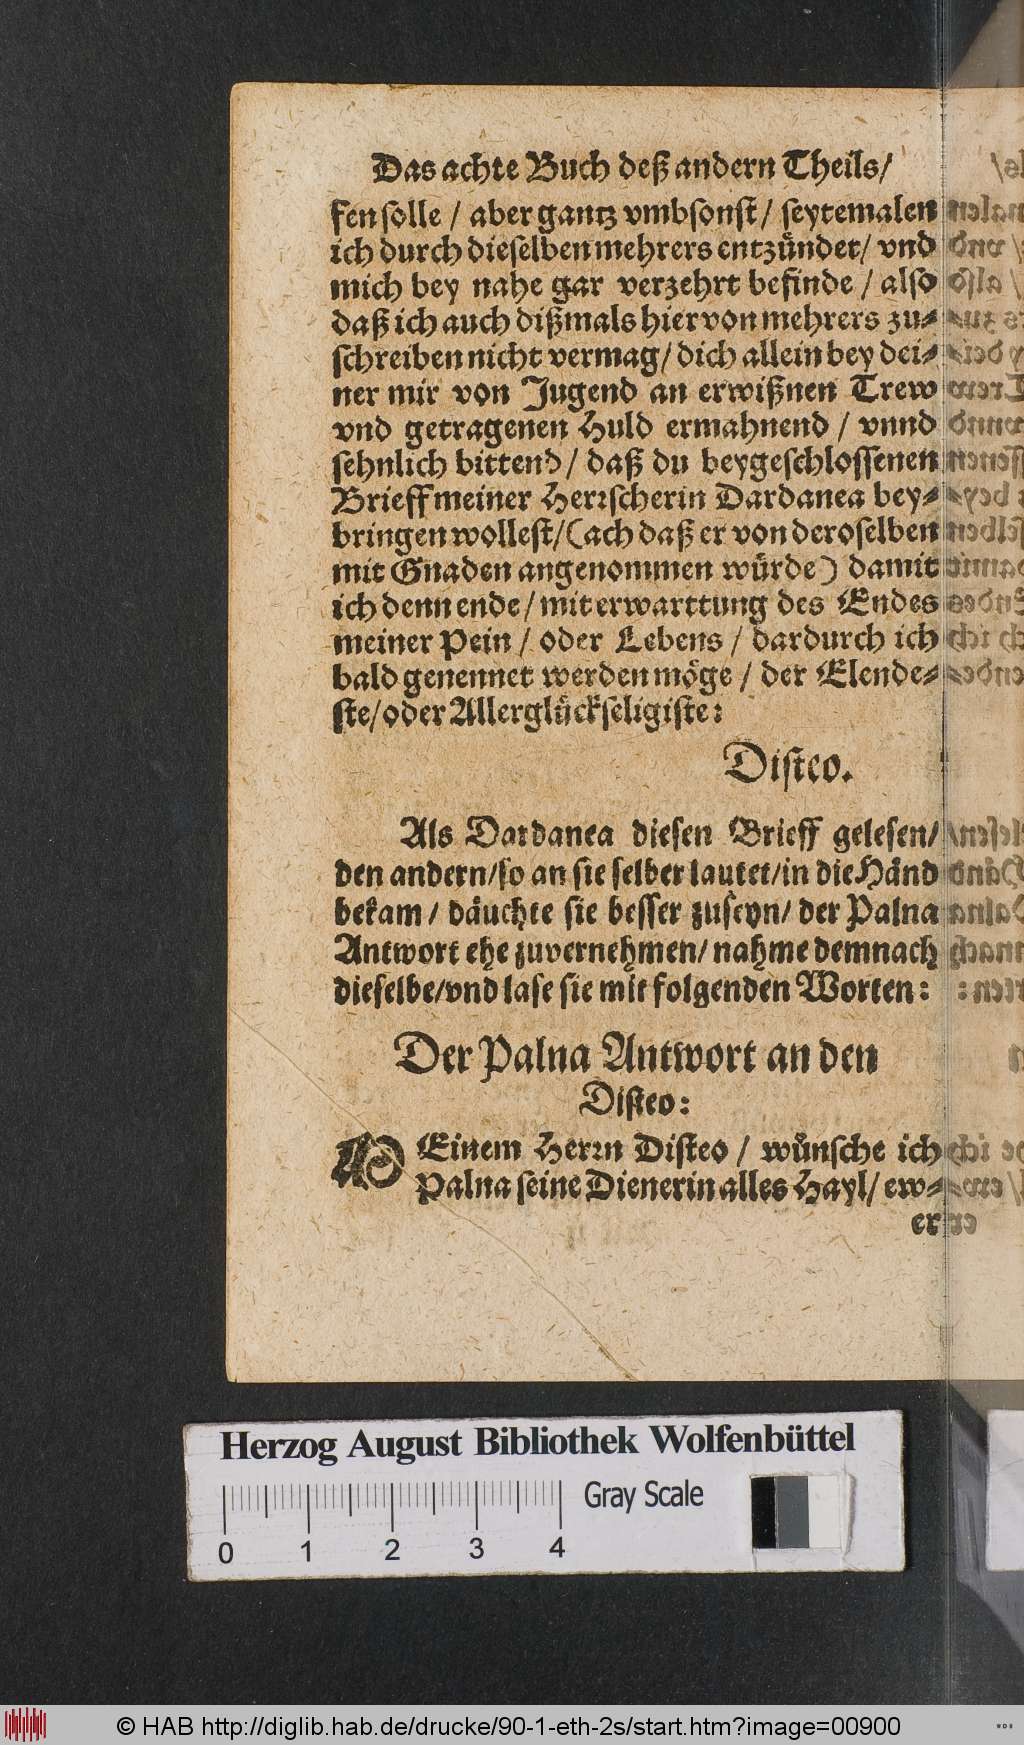 Das achte Buch deß andern Theils/
fen solle / aber gantz vmbsonst/ seytemalen
ich durch dieselben mehrers entzündet/ vnd
mich bey nahe gar verzehrt befinde / also
daß ich auch dißmals hiervon mehrers zu-
schreiben nicht vermag/ dich allein bey dei-
ner mir von Jugend an erwißnen Trew
vnd getragenen Huld ermahnend / vnnd
sehnlich bittend/ daß du beygeschlossenen
Brieff meiner Herrscherin Dardanea bey-
bringen wollest/(ach daß er von deroselben
mit Gnaden angenommen würde) damit
ich denn ende/ mit erwarttung des Endes
meiner Pein / oder Lebens / dardurch ich
bald genennet werden möge / der Elende-
ste/oder Allerglückseligiste:
Disteo.
Als Dardanea diesen Brieff gelesen/
den andern/so an sie selber lautet/in die Händ
bekam/ däuchte sie besser zuseyn/ der Palna
Antwort ehe zuvernehmen/ nahme demnach
dieselbe/vnd lase sie mit folgenden Worten:
Der Palna Antwort an den
Disteo:
Einem Herrn Disteo / wünsche ich
Palna seine Dienerin alles Hayl/ ew-
er
Herzog August Bibliothek Wolfenbüttel
Gray Scale
0 1 2 3 4
© HAB http://diglib.hab.de/drucke/90-1-eth-2s/start.htm?image=00900